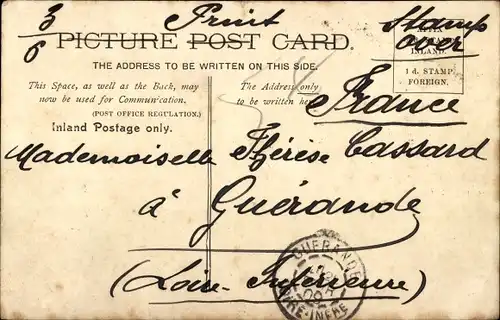 3/6 Print Stamp over
PICTURE POST CARD.
THE ADDRESS TO BE WRITTEN ON THIS SIDE.
INLAND.
1 d. STAMP
FOREIGN.
This Space, as well as the Back, may
now be used for Communication.
(POST OFFICE REGULATION.)
Inland Postage only.
The Address only
to be written here
France
Mademoiselle Thérèse Cassard
à Guérande
(Loire-Inférieure)
GUERANDE
LOIRE-INFRE